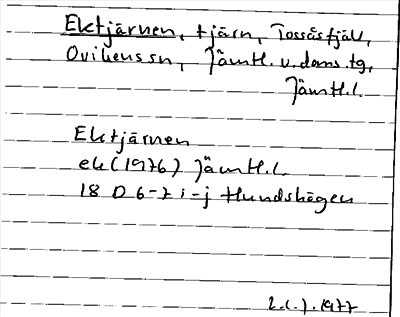 Ektjärnen, tjärn, Tossåsfjäll,
Ovikens sn, Jämtl. v. doms. tg,
Jämtl. l.
Ektjärnen
ek (1976) Jämtl. l.
18 D 6-7 i-j Hundshögen
1977